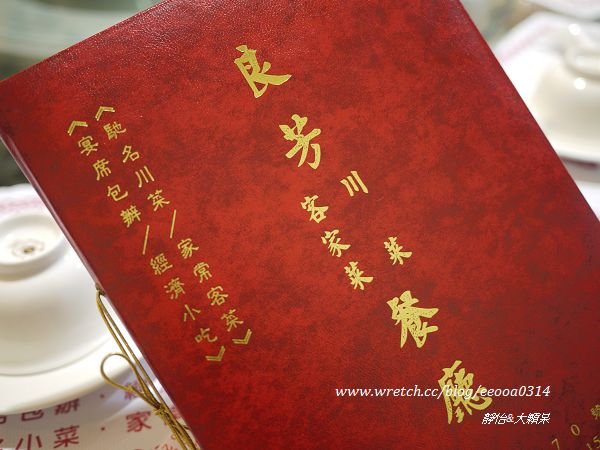 良芳
川菜
客家菜
餐廳
《馳名川菜/家常客菜》
《宴席包辦/經濟小吃》
www.wretch.cc/blog/eeooa0314
靜怡&大顆呆
70
15
包辦・經
小菜・家常